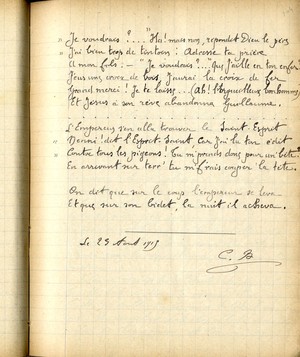 " Je voudrais ?...." "Ha! mais non, répondit Dieu le père
" J'ai bien trop de tintoin : Adresse ta prière
" A mon fils : — " Je voudrais ?..." Que j'aille en ton enfer
" Jeus une croix de bois, J'aurai la croix de fer
" Grand merci ! Je te laisse... (Ah! l'orgueilleux bonhomme)
" Et Jésus à son rêve abandonna Guillaume.
L'Empereur s'en alla trouver le Saint Esprit
" Donni ! dit l'Esprit Saint Car j'ai lu ton édit
" Contre tous les pigeons. Tu m'prends donc pour un bête
" En arrivant sur terr' tu m'f'rais couper la tête.
On dit que sur le coup l'empereur se leva
Et que, sur son bidet, la nuit il acheva.
Le 29 Août 1915
C. B